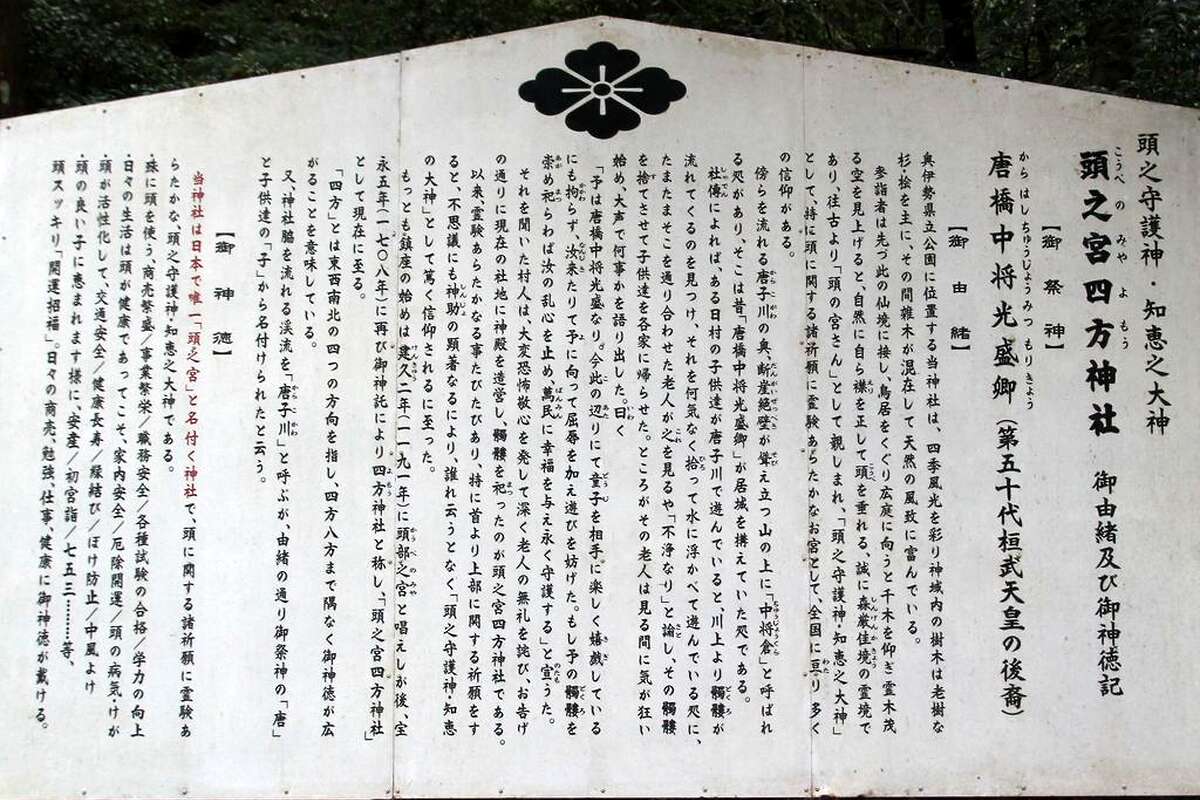 頭之守護神・知恵之大神
頭之宮四方神社 御由緒及び御神徳記
こうべ の みや よ もう
【御祭神】
唐橋中将光盛卿（第五十代桓武天皇の後裔）
からはしちゅうじょうみつもりきょう
【御由緒】
奥伊勢県立公園に位置する当神社は、四季風光を彩り神域内の樹木は老樹な
杉・桧を主に、その間雑木が混在して天然の風致に富んでいる。
参詣者は先づ此の仙境に接し、鳥居をくぐり広庭に向うと千木を仰ぎ霊木茂
る空を見上げると、自然に自ら襟を正して頭を垂れる、誠に森厳佳境の霊境で
あり、往古より「頭の宮さん」として親しまれ、「頭之守護神・知恵之大神」
として、特に頭に関する諸祈願に霊験あらたかなお宮として、全国に亘り多く
の信仰がある。
傍らを流れる唐子川の奥、断崖絶壁が聳え立つ山の上に「中将倉」と呼ばれ
る処があり、そこは昔「唐橋中将光盛卿」が居城を構えていた処である。
社傳によれば、ある日村の子供達が唐子川で遊んでいると、川上より髑髏が
流れてくるのを見つけ、それを何気なく拾って水に浮かべて遊んでいる処に、
たまたまそこを通り合わせた老人が之を見るや「不浄なり」と諭し、その髑髏
を捨てさせて子供達を各家に帰らせた。ところがその老人は見る間に気が狂い
始め、大声で何事かを語り出した。曰く
「予は唐橋中将光盛なり。今此の辺りにて童子を相手に楽しく嬉戯している
にも拘らず、汝来たりて予に向って屈辱を加え遊びを妨げた。もし予の髑髏を
崇め祀らわば汝の乱心を止め萬民に幸福を与え永く守護する」と宣うた。
それを聞いた村人は、大変恐怖敬心を発して深く老人の無礼を詫び、お告げ
の通りに現在の社地に神殿を造営し、髑髏を祀ったのが頭之宮四方神社である。
以来、霊験あらたかなる事たびたびあり、特に首より上部に関する祈願をす
ると、不思議にも神助の顕著なるにより、誰れ云うとなく「頭之守護神・知恵
の大神」として篤く信仰されるに至った。
もっとも鎮座の始めは建久二年（一一九一年）に頭部之宮と唱えしが後、宝
永五年（一七〇八年）に再び御神託により四方神社と称し、「頭之宮四方神社」
として現在に至る。
「四方」とは東西南北の四つの方向を指し、四方八方まで隅なく御神徳が広
がることを意味している。
又、神社脇を流れる渓流を「唐子川」と呼ぶが、由緒の通り御祭神の「唐」
と子供達の「子」から名付けられたと云う。
【御神徳】
当神社は日本で唯一「頭之宮」と名付く神社で、頭に関する諸祈願に霊験あ
らたかな、頭之守護神・知恵之大神である。
・殊に頭を使う、商売繁盛／事業祭栄／職務安全／各種試験の合格／学力の向上
・日々の生活は頭が健康であってこそ、家内安全／厄除開運／頭の病気・けが
頭が活性化して、交通安全／健康長寿／縁結び／ぼけ防止／中風よけ
・頭の良い子に恵まれます様に、安産／初宮詣／七五三………等、
頭スッキリ「開運招福」。日々の商売、勉強、仕事、健康に御神徳が戴ける。